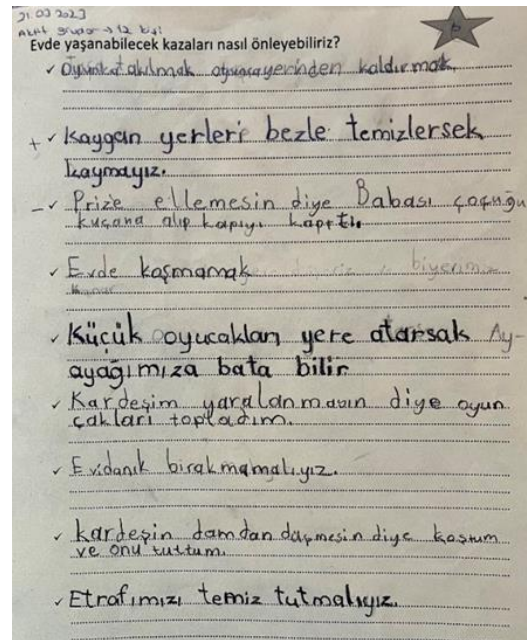 21.03.2023
b
Evde yaşanabilecek kazaları nasıl önleyebiliriz?
✓ takılmak yerinden kaldırmak
+ ✓ Kaygan yerleri bezle temizlersek
kaymayız.
- ✓ Prize ellemesin diye Babası çocuğu
kucana alıp kapıyı kapttı
✓ Evde koşmamak biyerimiz
✓ Küçük oyucakları yere atarsak Ay-
ayağımıza bata bilir
✓ Kardeşim yaralanmasın diye oyun
cakları topladım.
✓ Evi danık bırakmamalıyız.
✓ kardeşin damdan düşmesin diye koştum
ve onu tuttum.
✓ Etrafımızı temiz tutmalıyız.